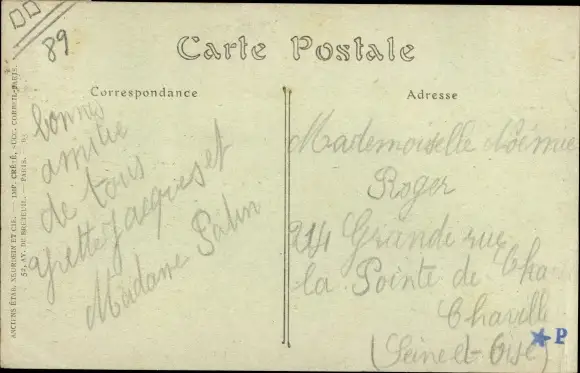 89
Carte Postale
Correspondance
Adresse
bonnes
amitié
de tous
Yvette Jacques et
Madame Palin
Mademoiselle Noémie
Roger
214 Grande rue
la Pointe de Cha
Chaville
(Seine et Oise)
P
ANCIENS ÉTAB. NEURDEIN ET CIE. — IMP. CRÉTÉ, SUCC. CORBEIL-PARIS.
52, AV. DE BRETEUIL. — PARIS.